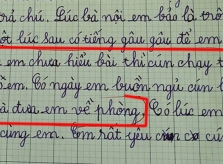 rả chú. Lúc bà nội em bảo là trô
ột lúc sau có tiếng gâu gâu để em
em chưa hiểu bài thì cún chạy t
em. Có ngày em buồn ngủ cún l
à đưa em về phòng. Có lúc em
cùng em. Em rất yêu cún có cử